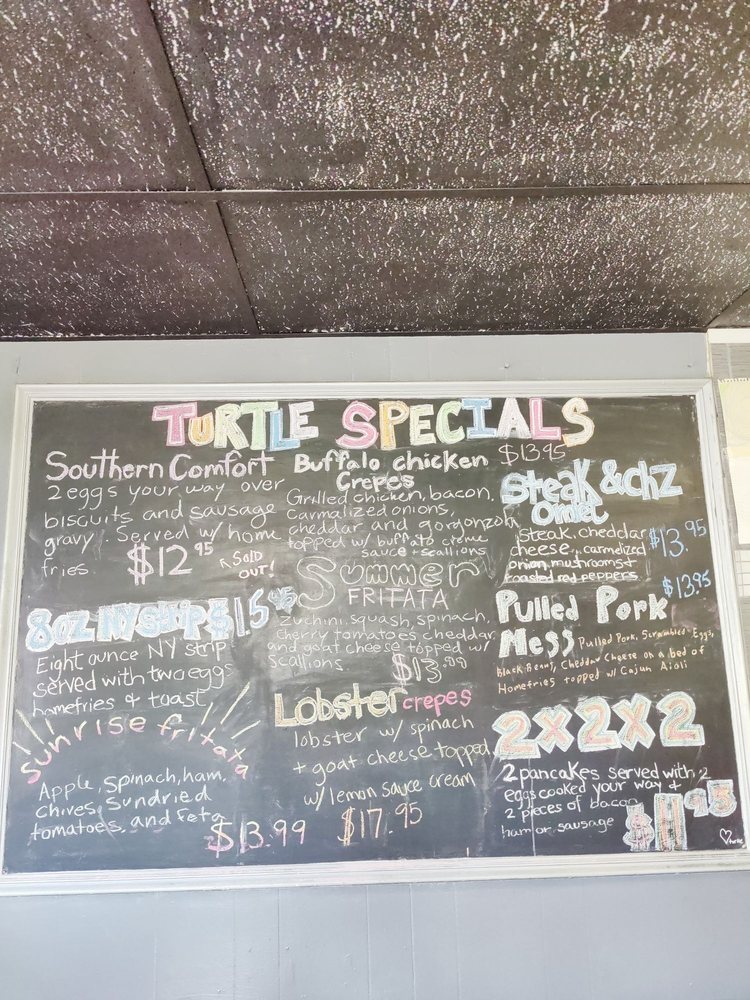 TURTLE SPECIALS
Southern Comfort
2 eggs your way over
biscuits and sausage
gravy. Served w/ home
fries.
$12.95
SOLD
OUT!
8oz NY strip $15.95
Eight ounce NY strip
served with two eggs
homefries & toast
sunrise fritata
Apple, Spinach, ham,
chives, sundried
tomatoes, and feta
$13.99
Buffalo chicken
Crepes
$13.95
Grilled chicken, bacon,
Carmalized onions,
cheddar and gorgonzola
topped w/ buffalo creme
sauce + scallions
Summer
FRITATA
Zuchini, squash, spinach,
cherry tomatoes, cheddar
and goat cheese topped w/
scallions
$13.99
Lobster crepes
lobster w/ spinach
+ goat cheese topped
w/ lemon sauce cream
$17.95
Steak & chz
Omlet
steak, cheddar
cheese, carmelized
onion, mushrooms +
roasted red peppers
$13.95
$13.95
Pulled Pork
Mess
Pulled Pork, Scrambled Eggs,
Black Beans, Cheddar Cheese on a bed of
Homefries topped w/ Cajun Aioli
2x2x2
2 pancakes served with 2
eggs cooked your way +
2 pieces of bacon
ham or sausage
$11.95